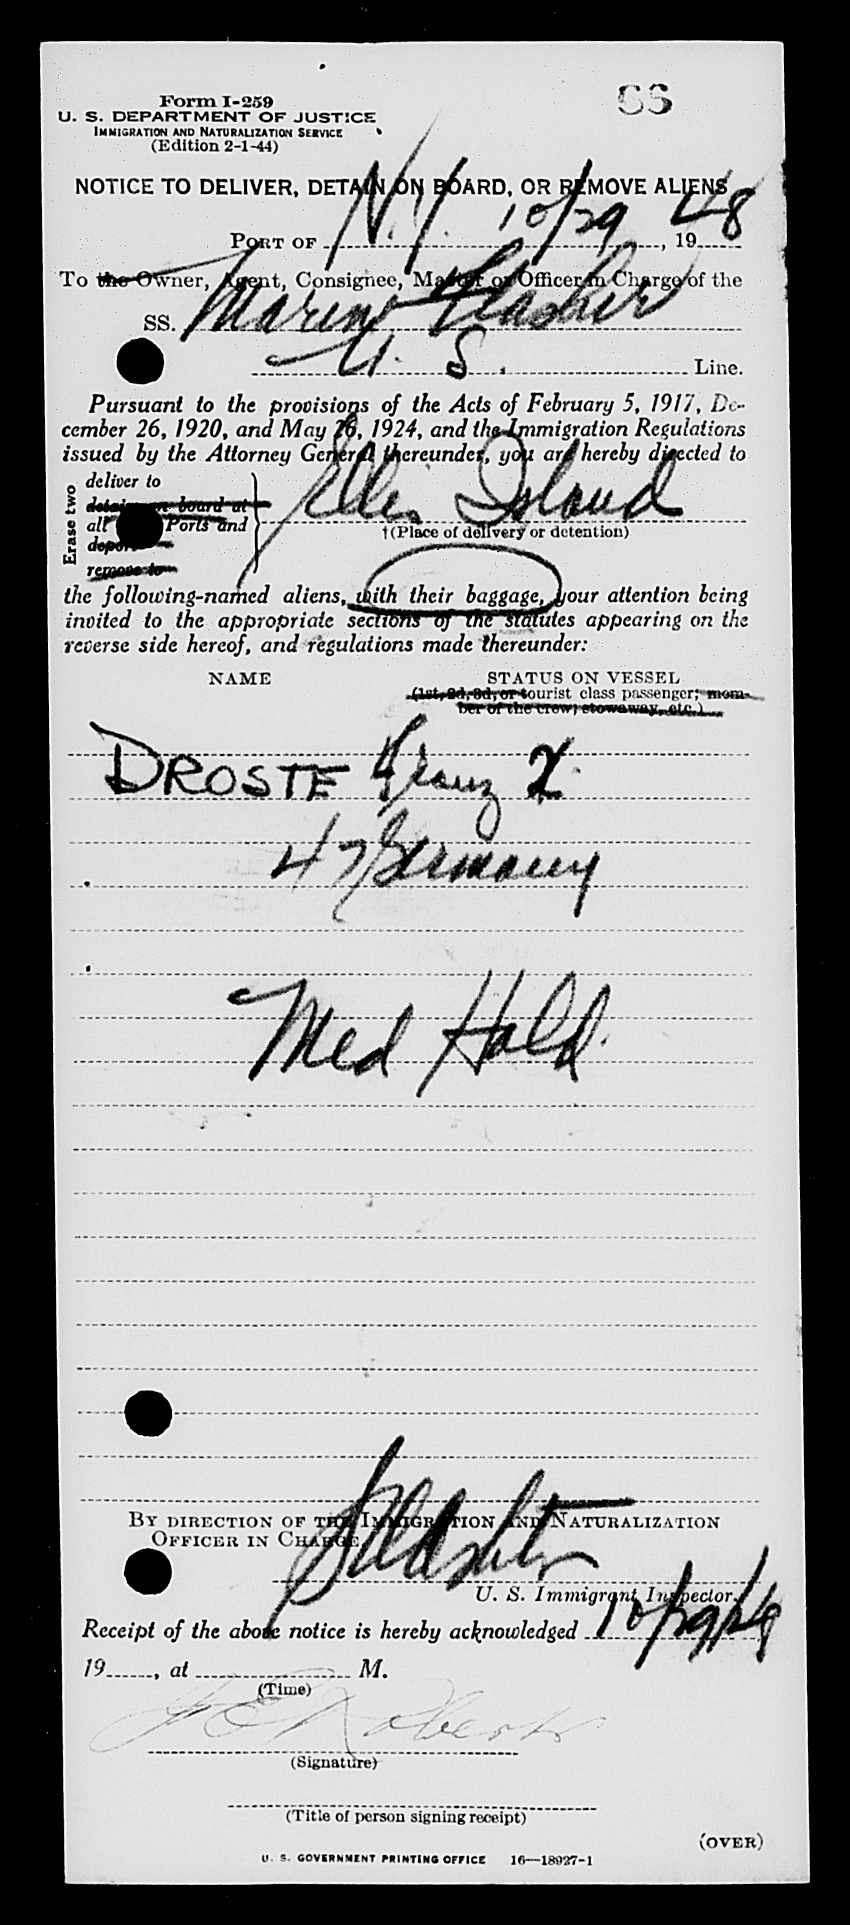 Form I-259
66
U. S. DEPARTMENT OF JUSTICE
IMMIGRATION AND NATURALIZATION SERVICE
(Edition 2-1-44)
NOTICE TO DELIVER, DETAIN ON BOARD, OR REMOVE ALIENS
PORT OF N.Y. 10/29, 1948
To the Owner, Agent, Consignee, Master or Officer in Charge of the
SS. Marine Flasher
U. S. Line.
Pursuant to the provisions of the Acts of February 5, 1917, De-
cember 26, 1920, and May 26, 1924, and the Immigration Regulations
issued by the Attorney General thereunder, you are hereby directed to
Erase two
deliver to
detain on board at
all Ports and
deport
remove to
Ellis Island
†(Place of delivery or detention)
the following-named aliens, with their baggage, your attention being
invited to the appropriate sections of the statutes appearing on the
reverse side hereof, and regulations made thereunder:
NAME STATUS ON VESSEL
(1st, 2d, 3d, or tourist class passenger; mem-
ber of the crew; stowaway, etc.)
DROSTE Franz X.
47 Germany
Med Hold.
BY DIRECTION OF THE IMMIGRATION AND NATURALIZATION
OFFICER IN CHARGE
U. S. Immigrant Inspector.
Receipt of the above notice is hereby acknowledged 10/29/48
19, at M.
(Time)
Roberts
(Signature)
(Title of person signing receipt)
(OVER)
U. S. GOVERNMENT PRINTING OFFICE 16—18927-1